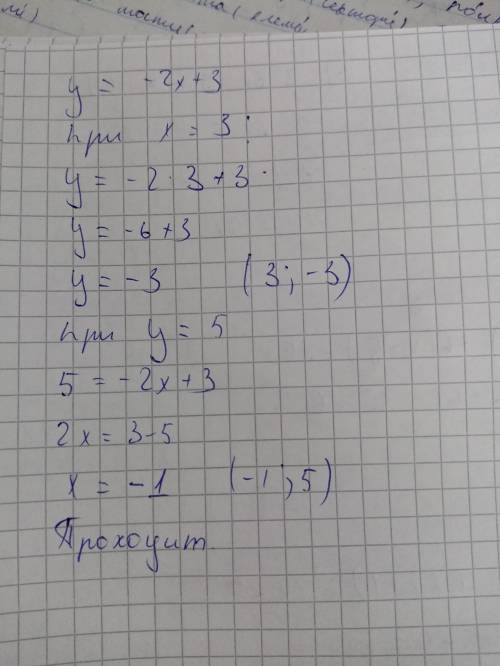 y = -2x+3
при x = 3;
y = -2·3+3
y = -6+3
y = -3 (3; -3)
при y = 5
5 = -2x+3
2x = 3-5
x = -1 (-1; 5)
Проходит.